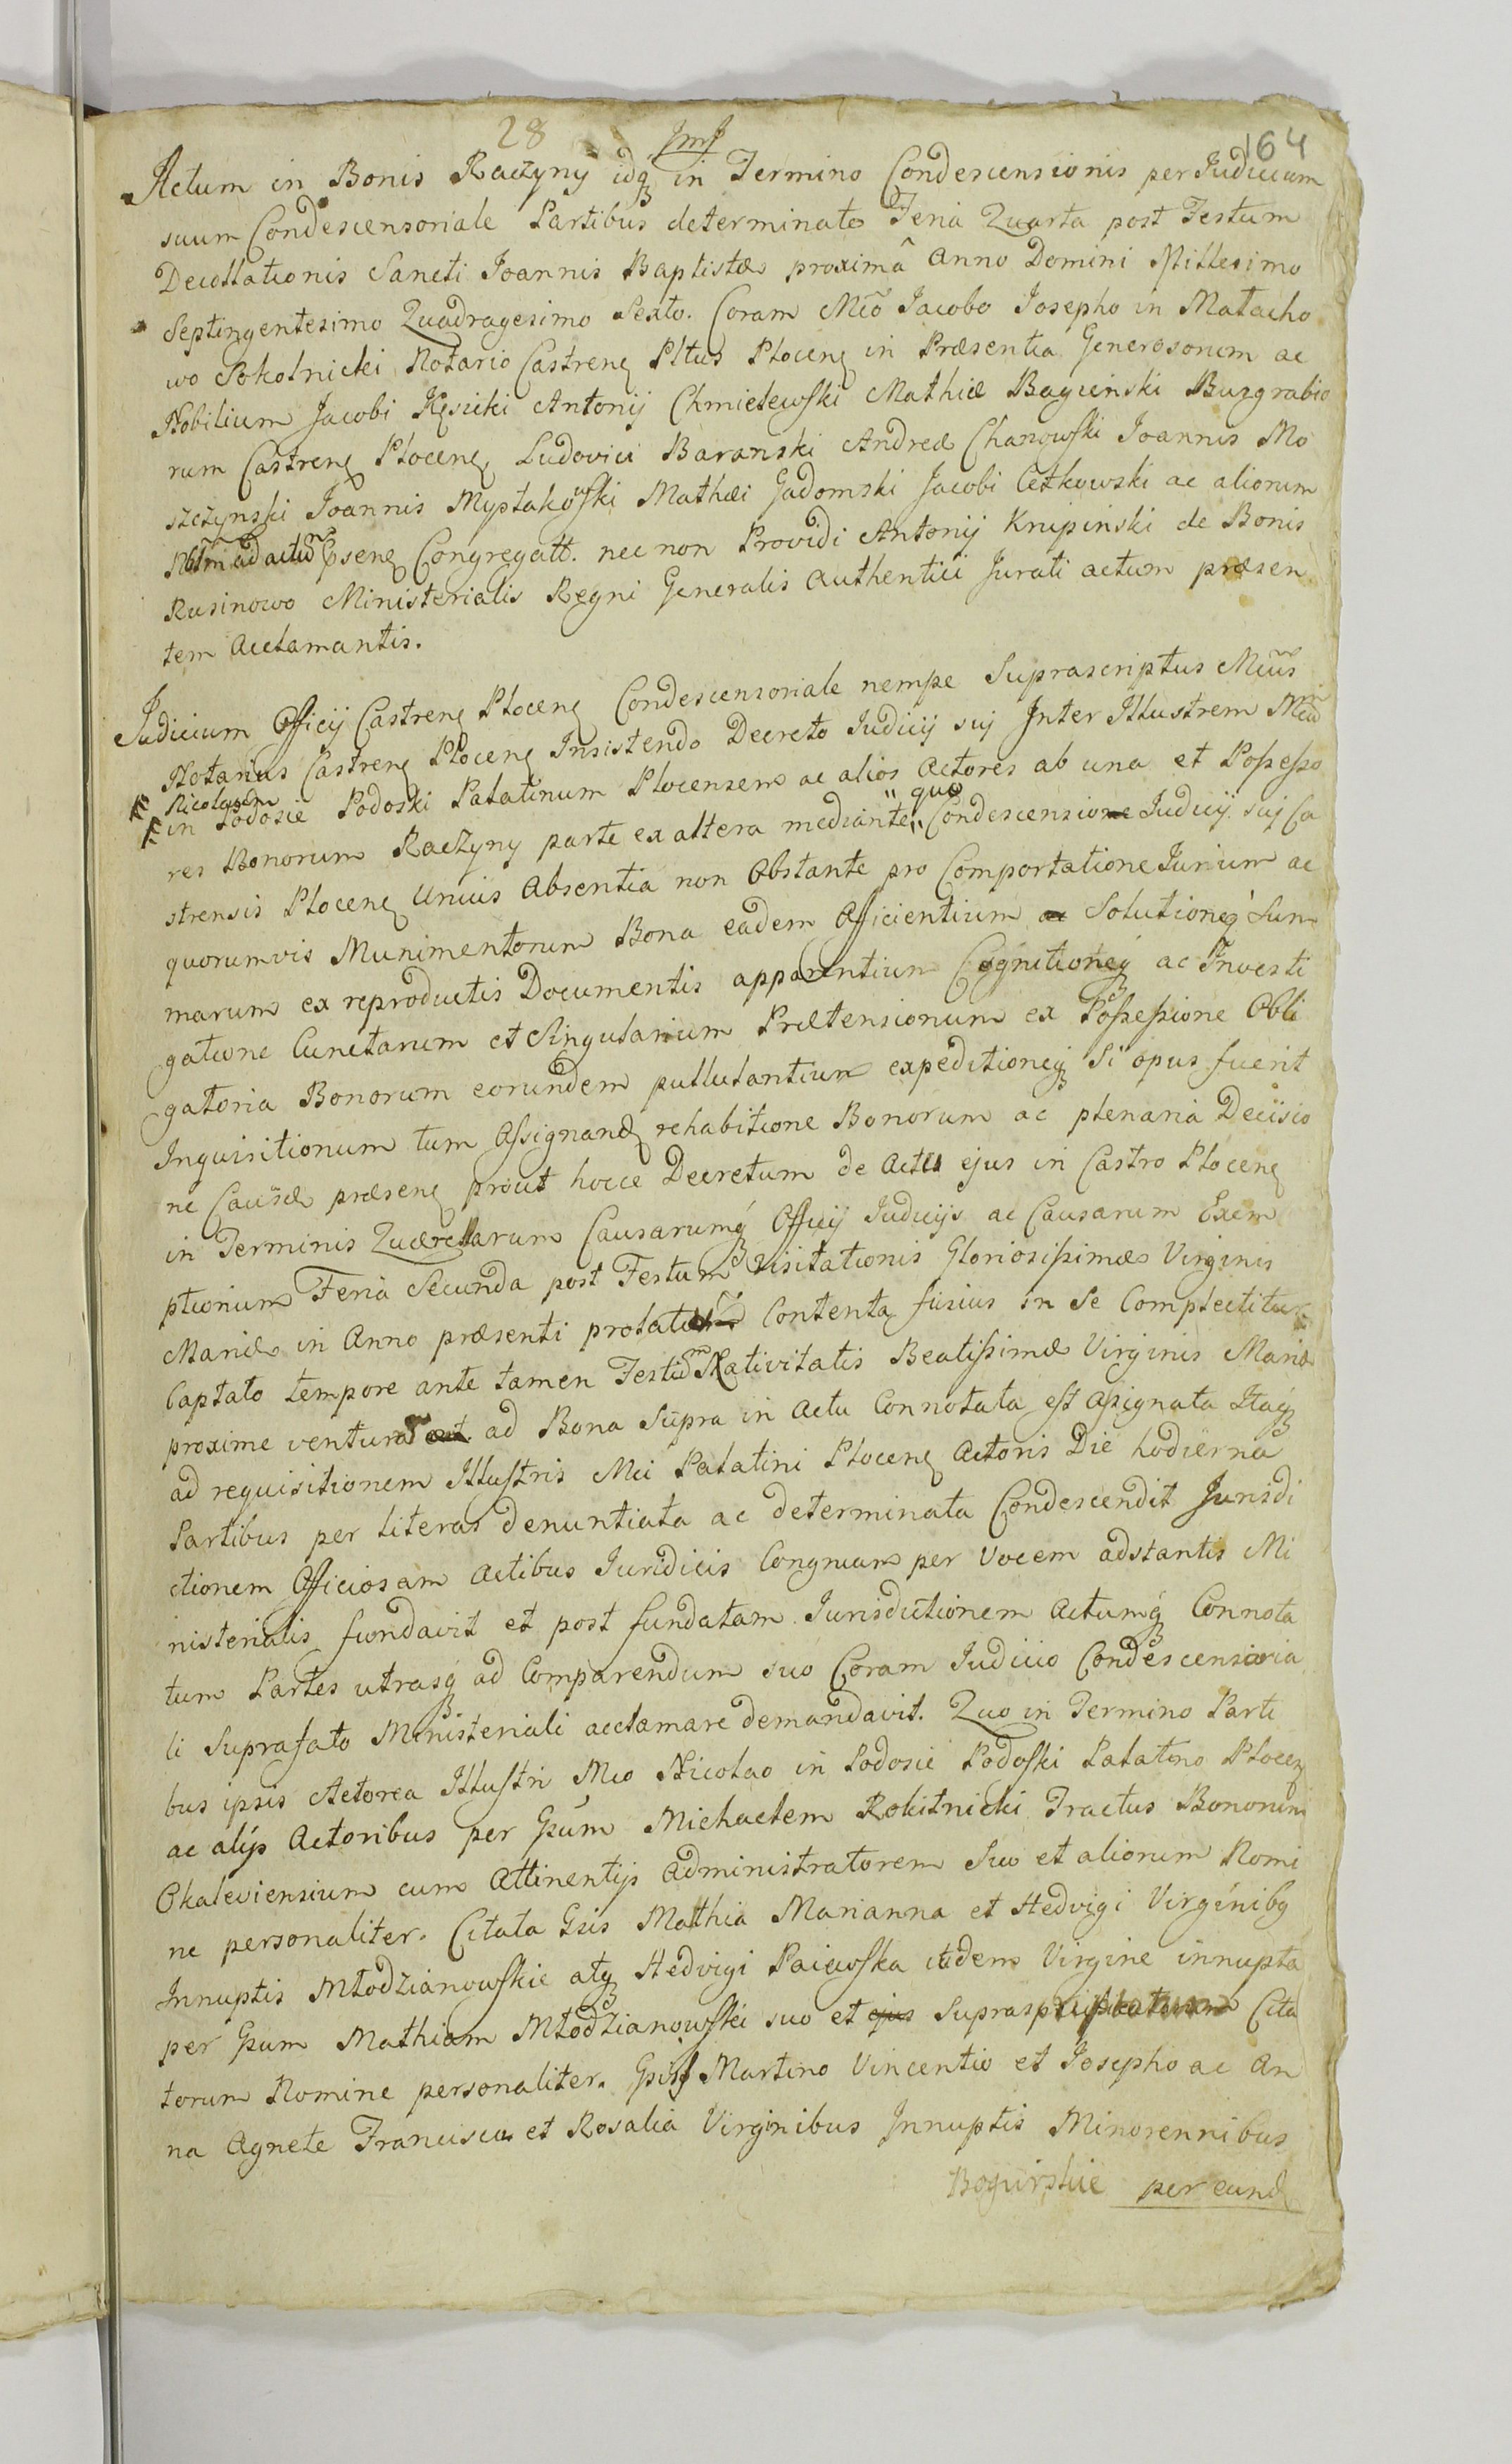 28 164
Actum in Bonis Raczyny idq in Termino Condescensionis per Judicium
suum Condescensoriale Partibus determinato Feria Quarta post Festum
Decollationis Sancti Joannis Baptistæ proximâ Anno Domini Millesimo
Septingentesimo Quadragesimo Sexto. Coram Mco Jacobo Josepho in Małacho
wo Sokolnicki Notario Castren Pltus Plocen in Præsentia Generosorum ac
Nobilium Jacobi Kęsicki Antonij Chmielewski Mathiæ Bagieński Burgrabio
rum Castren Plocen, Ludovici Baranski Andreæ Chanowski Joannis Mo
szczynski Joannis Mystakowski Mathæi Gadomski Jacobi Cetkowski ac aliorum
ad actum Congregatt. nec non Providi Antonij Knipiński de Bonis
Rusinowo Ministerialis Regni Generalis Authentici Jurati actum præsen
tem Acclamantis.
Judicium Officij Castren Plocen Condescensoriale nempe Suprascriptus Mcus
Notarius Castren Plocen Insistendo Decreto Judicij sui Inter Illustrem Mcum
Nicolaum
in Podosie Podoski Palatinum Plocensem ac alios Actores ab una et Possesso
res Bonorum Raczyny parte ex altera mediante quo Condescensione Judicij sui Ca
strensis Plocen Unius Absentia non Obstante pro Comportatione Jurium ac
quorumvis Munimentorum Bona eadem Afficientium ac Solutioneq Sum
marum ex reproductis Documentis apparentium Cognitioneq ac Investi
gatione Cunctarum et Singularium Prætensionum ex Possessione Obli
gatoria Bonorum eorundem pullulantium expeditioneq Si opus fuerit
Inquisitionum tum Assignand rehabitione Bonorum ac plenaria Decisio
ne Causæ præsen prout hocce Decretum de Actu ejus in Castro Plocen
in Terminis Querellarum Causarumq Officij Judicijs ac Causarum Exem
ptionum Feria Secunda post Festum Visitationis Gloriosissimæ Virginis
Mariæ in Anno præsenti prolatum Contenta fusius in Se Complectitur
Captato tempore ante tamen Festum Nativitatis Beatissimæ Virginis Mariæ
proxime ventura ad Bona Supra in Actu Connotata est Assignata Itaq
ad requisitionem Illustris Mci Palatini Plocen Actoris Die hodierna
Partibus per literas denuntiata ac determinata Condescendit Jurisdi
ctionem Officiosam Actibus Juridicis Congruam per Vocem adstantis Mi
nisterialis fundavit et post fundatam Jurisdictionem Actumq Connota
tum Partes utrasq ad Comparendum suo Coram Judicio Condescensoria
li Suprafato Ministeriali acclamare demandavit. Quo in Termino Parti
bus ipsis Actorea Illustri Mco Nicolao in Podosie Podoski Palatino Plocen
ac alijs Actoribus per Gsum Michaelem Rokitnicki Tractus Bonorum
Okaleviensium cum Attinentijs Administratorem Suo et aliorum Nomi
ne personaliter. Citata Gsis Mathia Marianna et Hedvigi Virginibq
Innuptis Młodzianowskie atq Hedvigi Paiewska itidem Virgine innupta
per Gsum Mathiam Młodzianowski suo et ejus Cita
torum Nomine personaliter. Gsis Martino Vincentio et Josepho ac An
na Agnete Francisca et Rosalia Virginibus Innuptis Minorennibus
per eund